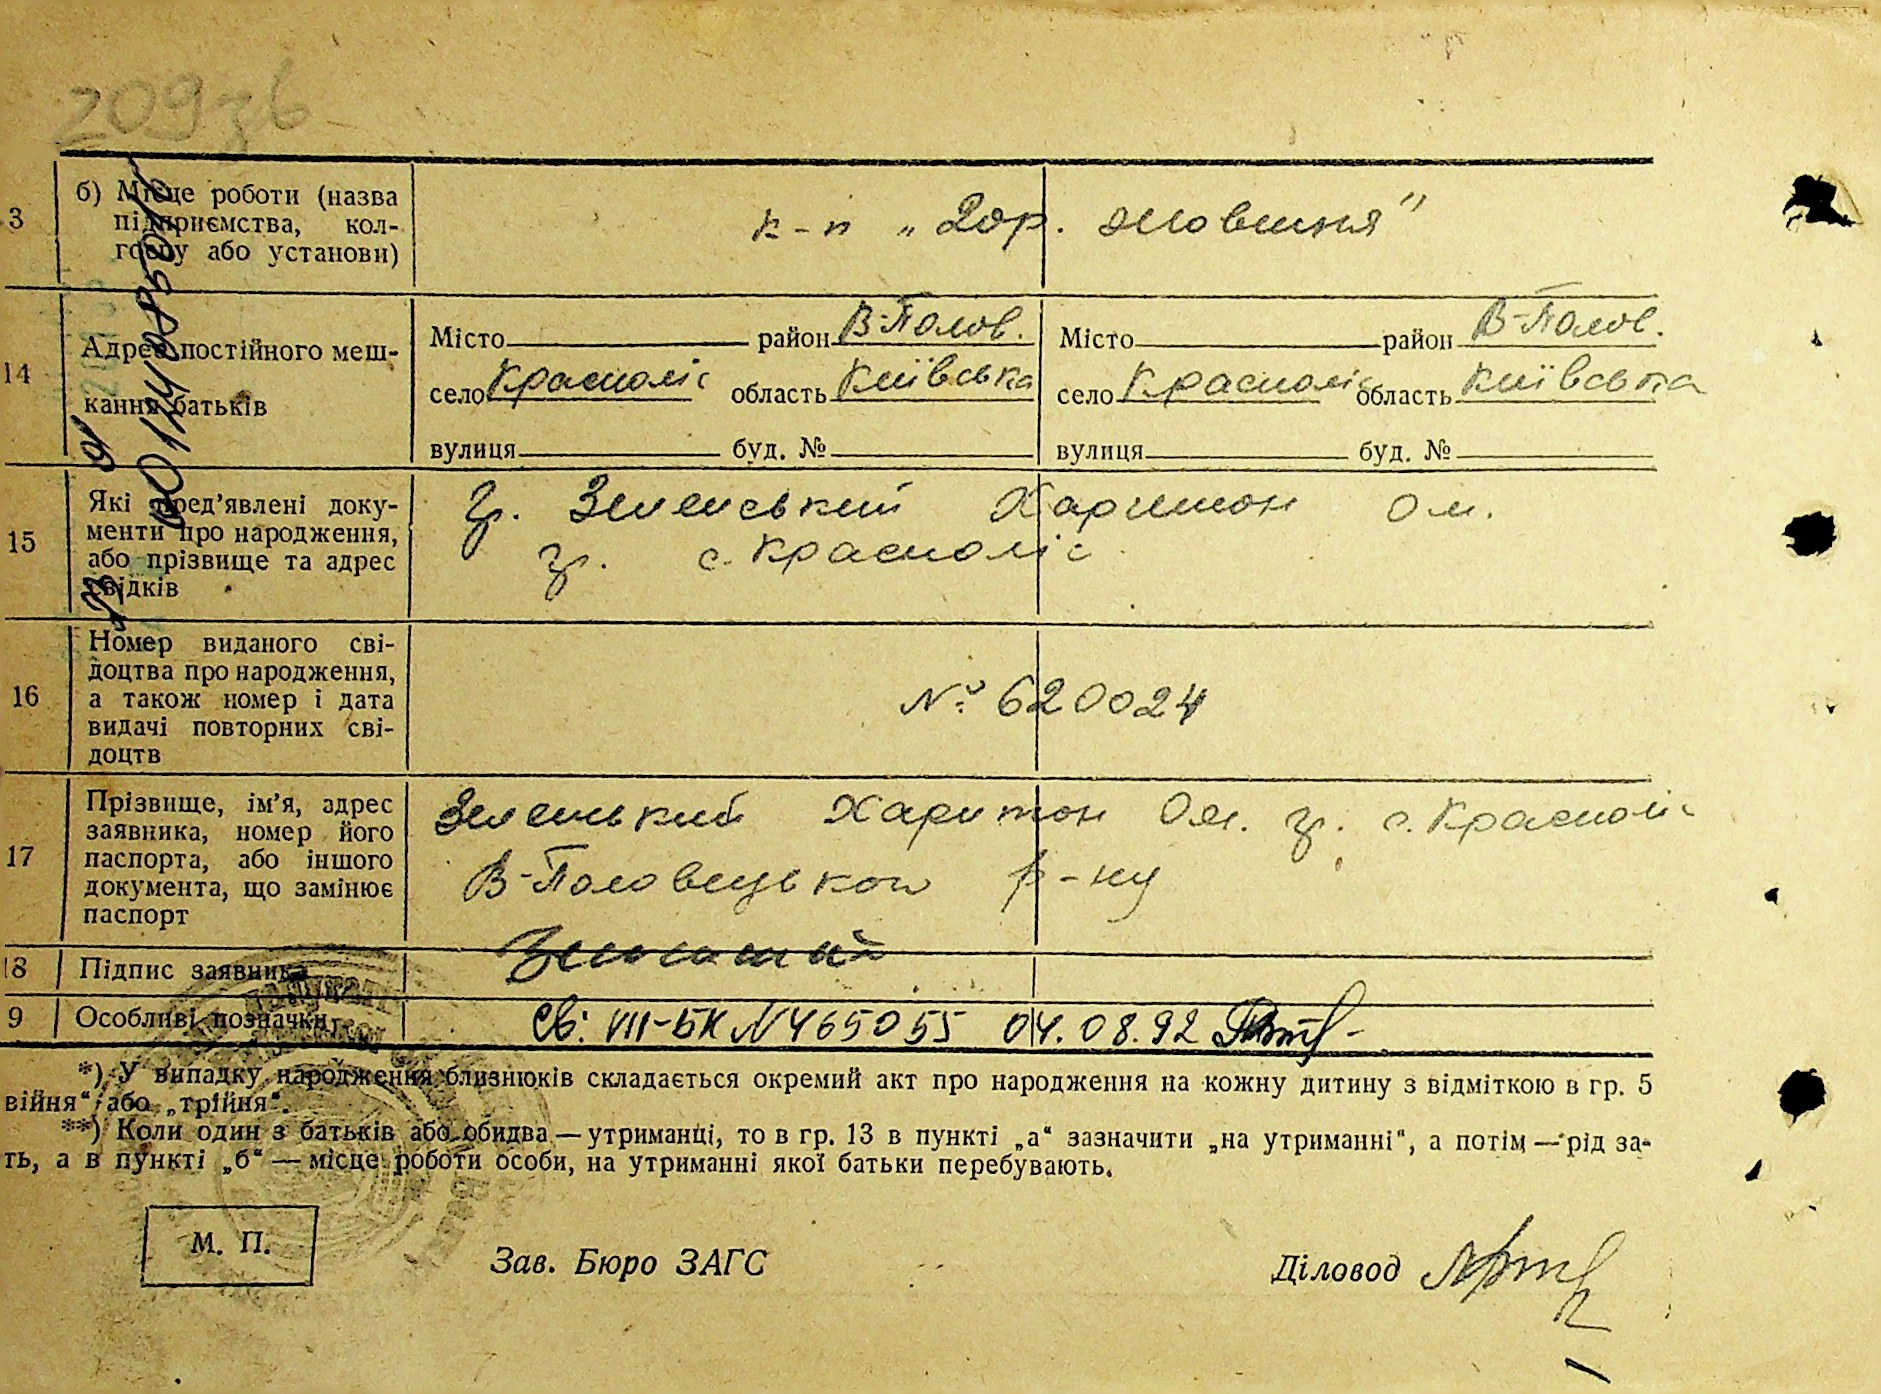 209зв
3 б) Місце роботи (назва
підприємства, кол-
госпу або установи)
к-п „2 ор. жовтня"
14 Адрес постійного меш-
кання батьків
Місто район В-Полов. Місто район В-Полов.
село Красноліс область Київська село Красноліс область Київська
вулиця буд. № вулиця буд. №
15 Які пред'явлені доку-
менти про народження,
або прізвище та адрес
свідків
гр. Зеленський Харитон Ом.
гр. с. Красноліс
16 Номер виданого сві-
доцтва про народження,
а також номер і дата
видачі повторних сві-
доцтв
№ 620024
17 Прізвище, ім'я, адрес
заявника, номер його
паспорта, або іншого
документа, що замінює
паспорт
Зеленський Харитон Ом. гр. с. Красноліс
В-Половецького р-ну
18 Підпис заявника
9 Особливі позначки
Св: VIII-БК N 465055 04.08.92
*) У випадку народження близнюків складається окремий акт про народження на кожну дитину з відміткою в гр. 5
війня" або „трійня".
**) Коли один з батьків або обидва — утриманці, то в гр. 13 в пункті „а" зазначити „на утриманні", а потім — рід за-
ть, а в пункті „б" — місце роботи особи, на утриманні якої батьки перебувають.
М. П.
Зав. Бюро ЗАГС Діловод